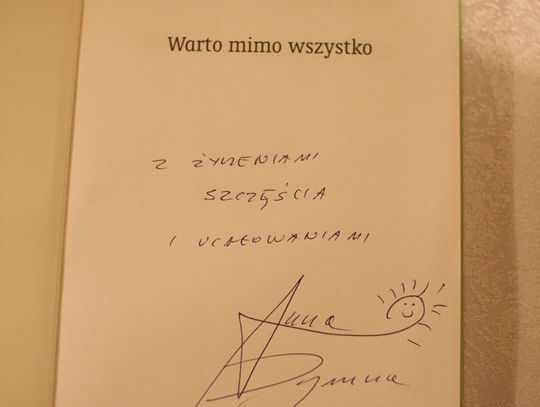 Warto mimo wszystko
Z ŻYCZENIAMI
SZCZĘŚCIA
I UCAŁOWANIAMI
Anna
Dymna